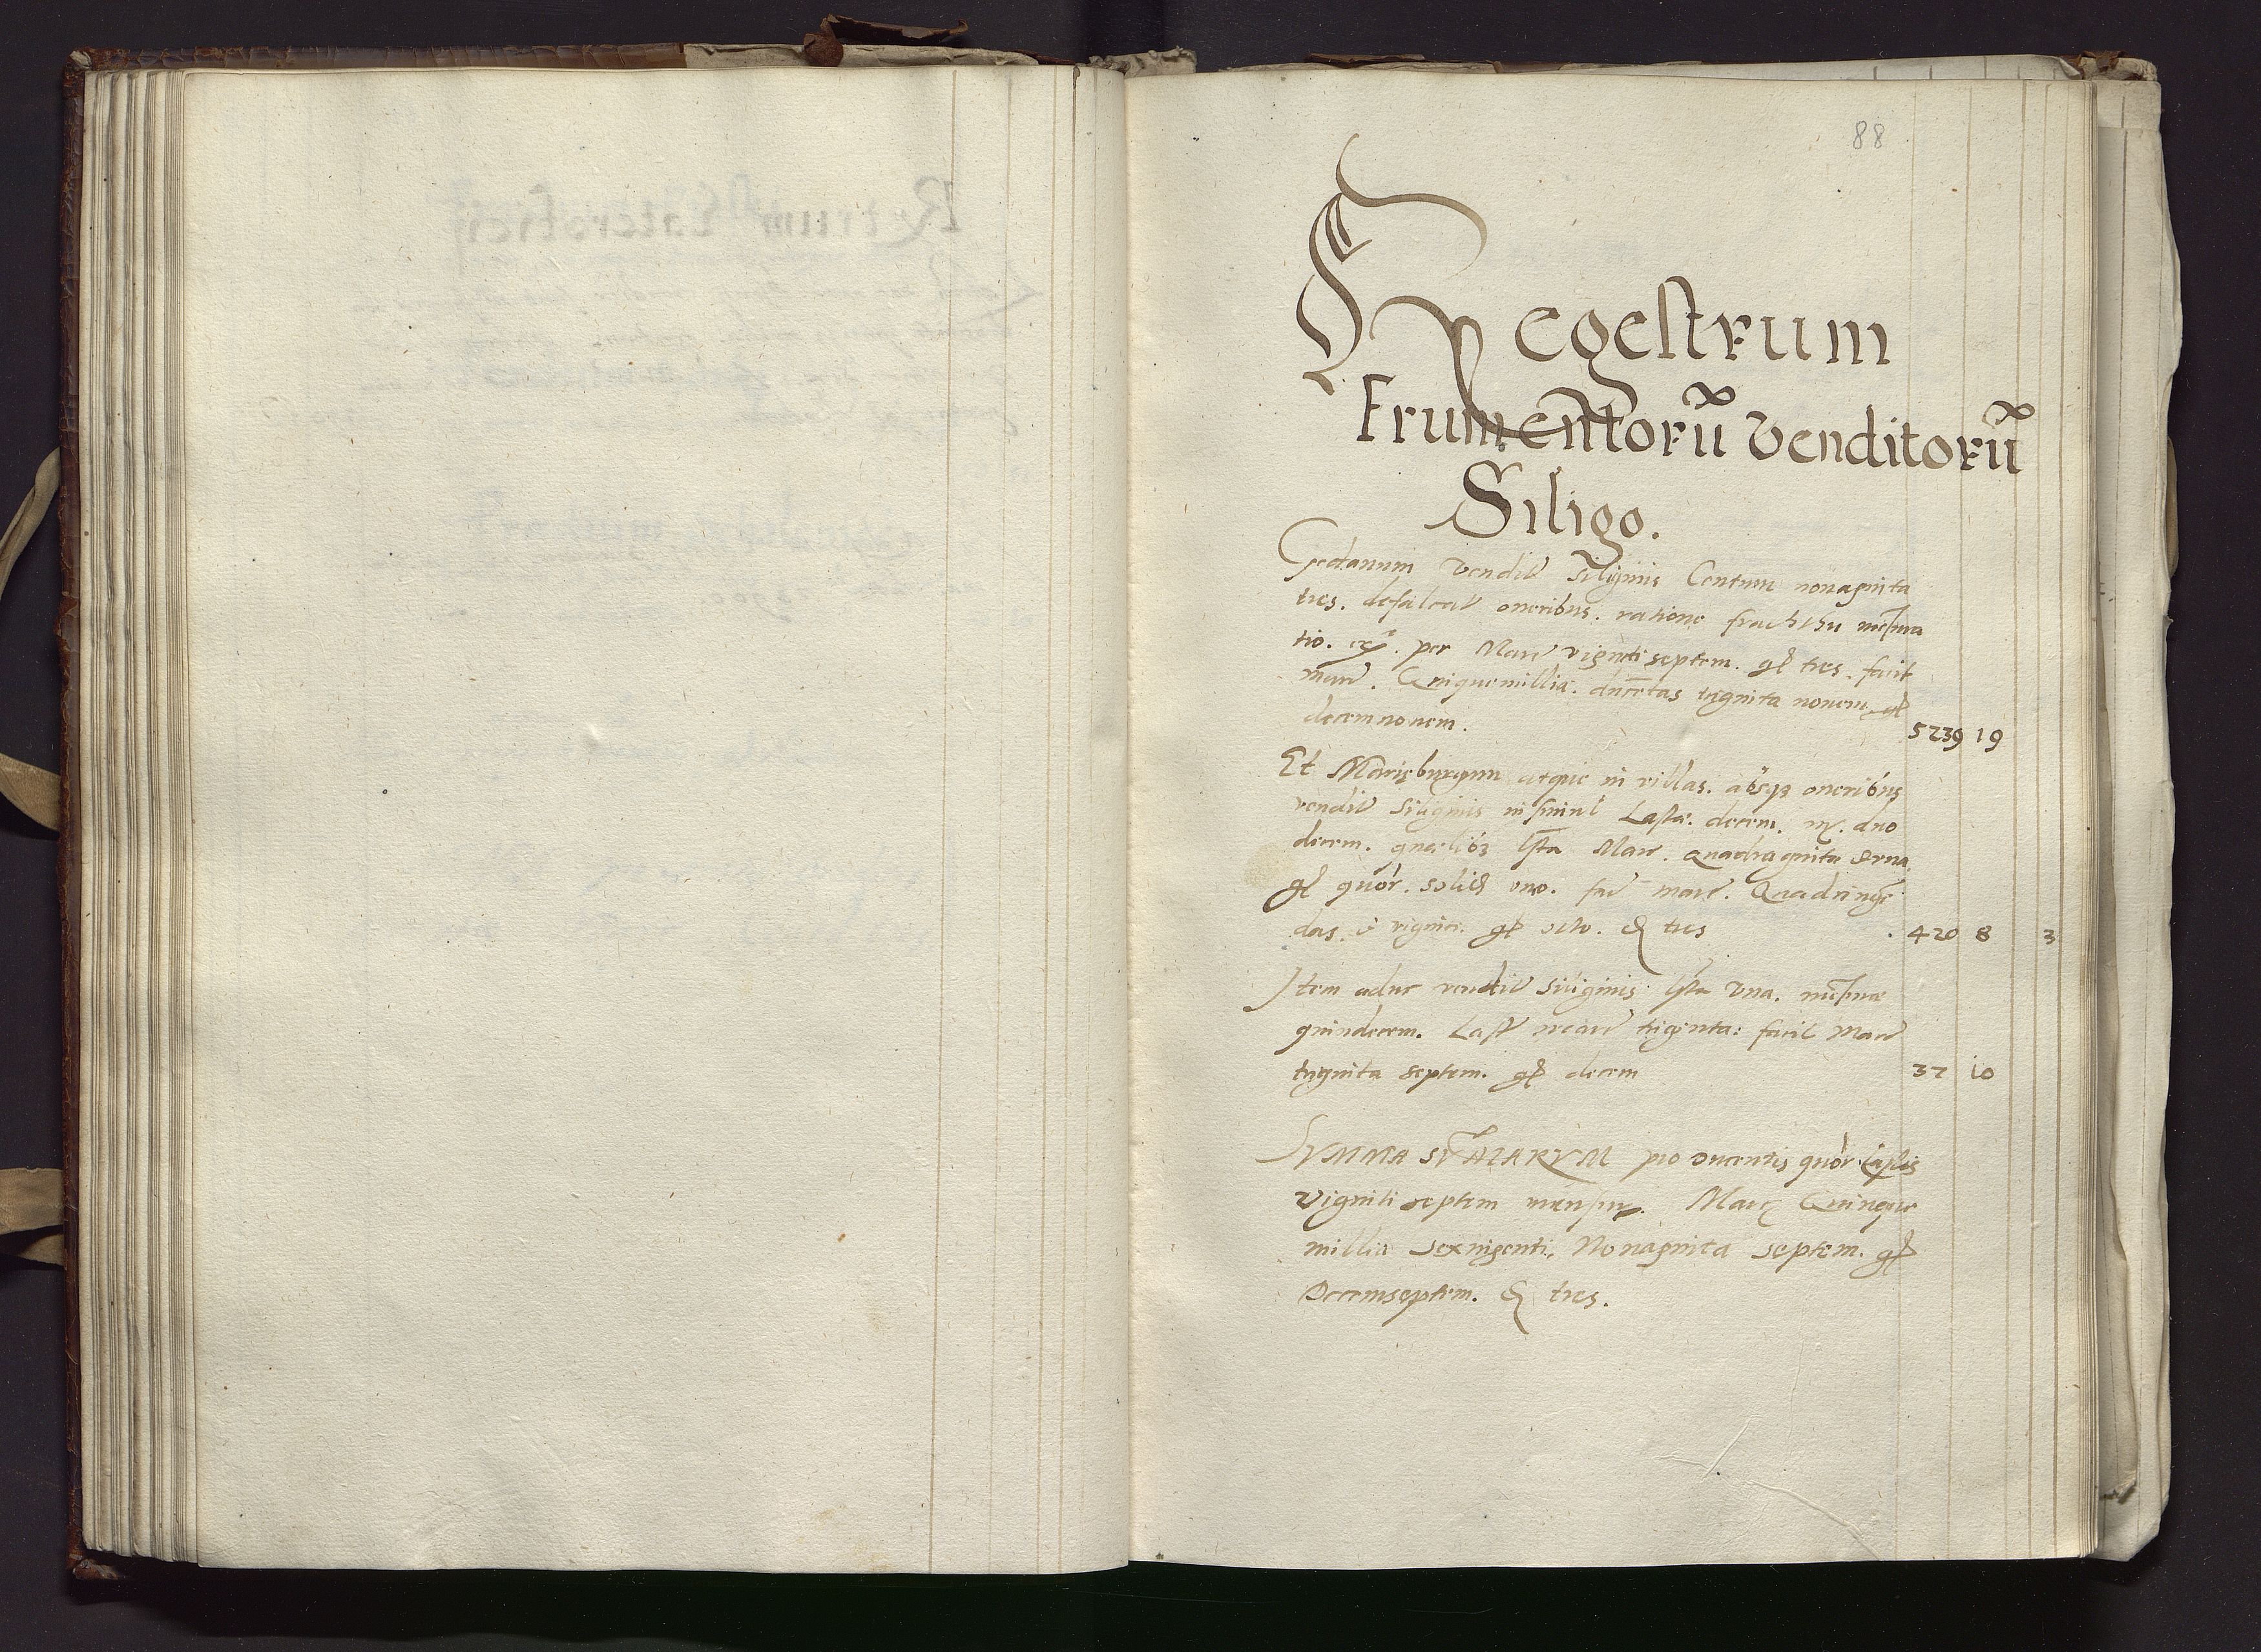 88
Regestrum
Frumentorũ Venditorũ
Siligo.
Gedanum vendit Siliginis Centum nonaginta
tres. defalcat oneribus. ratione frachthu mensura
tio. per Marc viginti septem. gͦ tres. facit
marc. Quiquemillia. ducētas triginta novem gͦ
decemnonem. 5239 19
Et Marieburgum atque in villas. absqz oneribus
vendit Siliginis insimul Lastæ. decem. m. duo
decem. quælibz lsta Marc. Quadraginta
gͦ quor. solid uno. fac marc. Quadringē
tas. viginti. gͦ octo. δ tres . 420 8 3
Item aduc vendit Siliginis lsta Una. mēsuræ
quindecem. Last marc trigenta: facit Marc
triginta septem. gͦ decem 37 10
SVMMA SVMMARVM pro Ducentis quor Lastis
Viginti septem mensur. Marc Quinque
millia Sexnigenti, Nonaginta septem. gͦ
Decemseptem. δ tres.